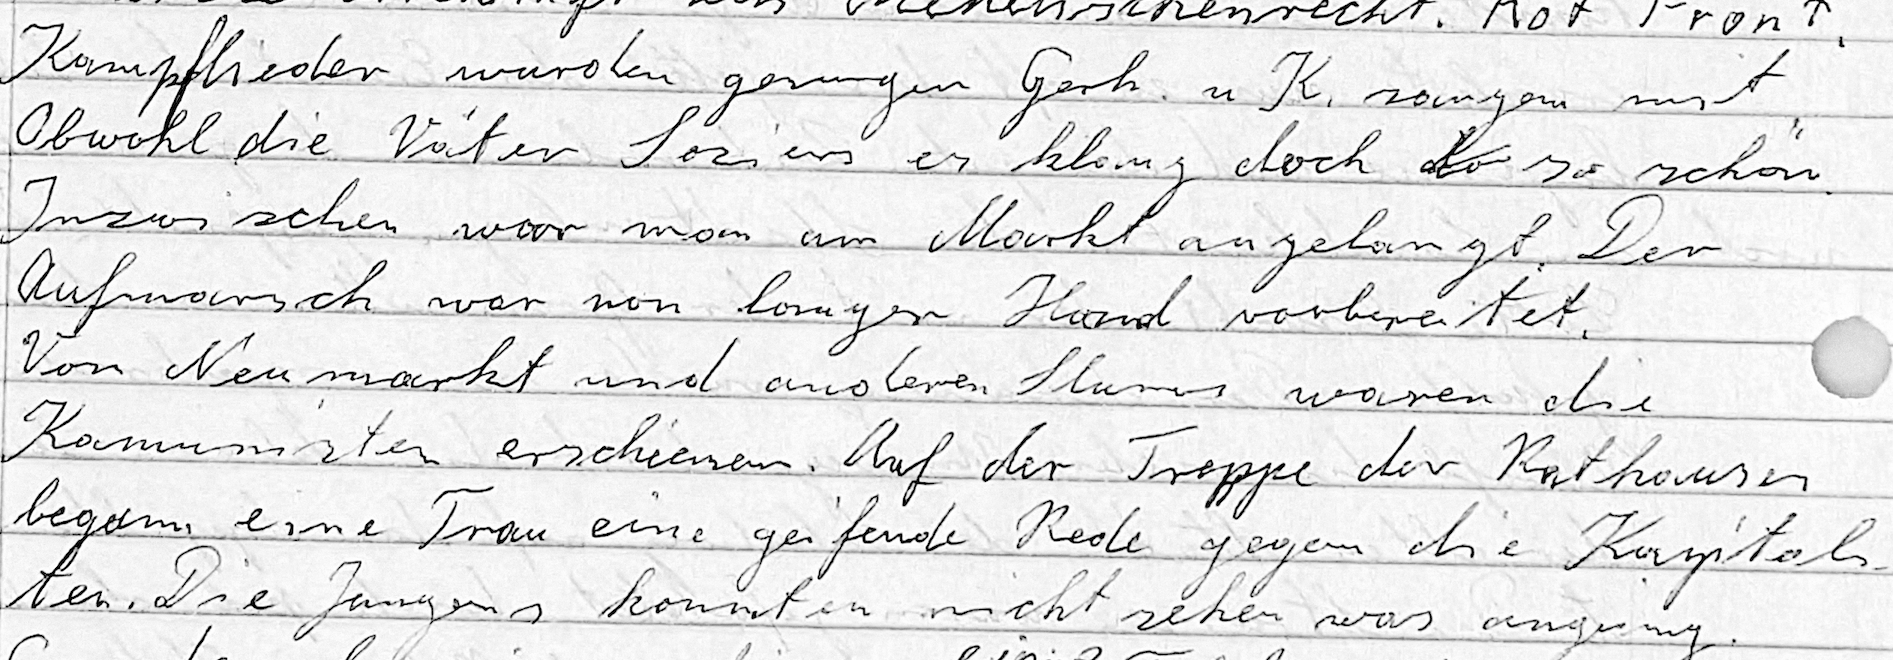 Menschenrecht. Rot Front.
Kampflieder wurden gesungen Gerh. u K. sangen mit
Obwohl die Väter Sozis es klang doch so schön.
Inzwischen war man am Markt angelangt. Der
Aufmarsch war von langer Hand vorbereitet.
Von Neumarkt und anderen Slums waren die
Kommunisten erschienen. Auf der Treppe des Rathauses
begann eine Frau eine geifende Rede gegen die Kapitalis-
ten. Die Jungens konnten nicht sehen was anging.